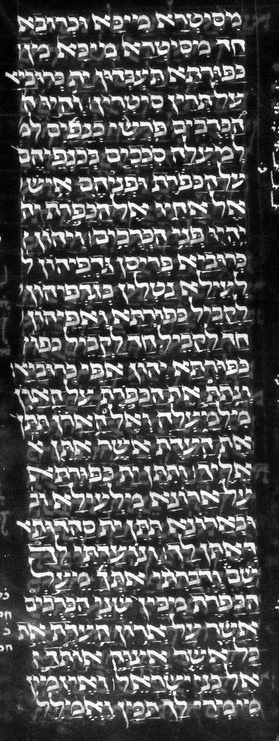 מסיטרא מיכא וכרובא
חד מסיטרא מיכא מן
כפורתא תעבדון ית כרוביא
על תרין סיטרוהי והיו ה
הכרבים פרשי כנפים למ
למעלה סככים בכנפיהם
על הכפרת ופניהם איש
אל אחיו אל הכפרת יה
יהיו פני הכרבים ויהון
כרוביא פריסן גדפיהון ל
לעילא מטלין בגדפיהון
לקביל כפורתא ואפיהון
חד לקביל חד לקביל כפו
כפורתא יהון אפי כרוביא
ונתת את הכפרת על הארן
מלמעלה ואל הארן תתן
את העדת אשר אתן א
אליך ותתן ית כפורתא
על ארונא מלעילא וב
ובארונא תתן ית סהדותא
דאתן לך ונועדתי לך
שם ודברתי אתך מעל
הכפרת מבין שני הכרבים
אשר על ארון העדת את
כל אשר אצוה אותך
אל בני ישראל ואזמין
מימרי לך תמן ואמלל